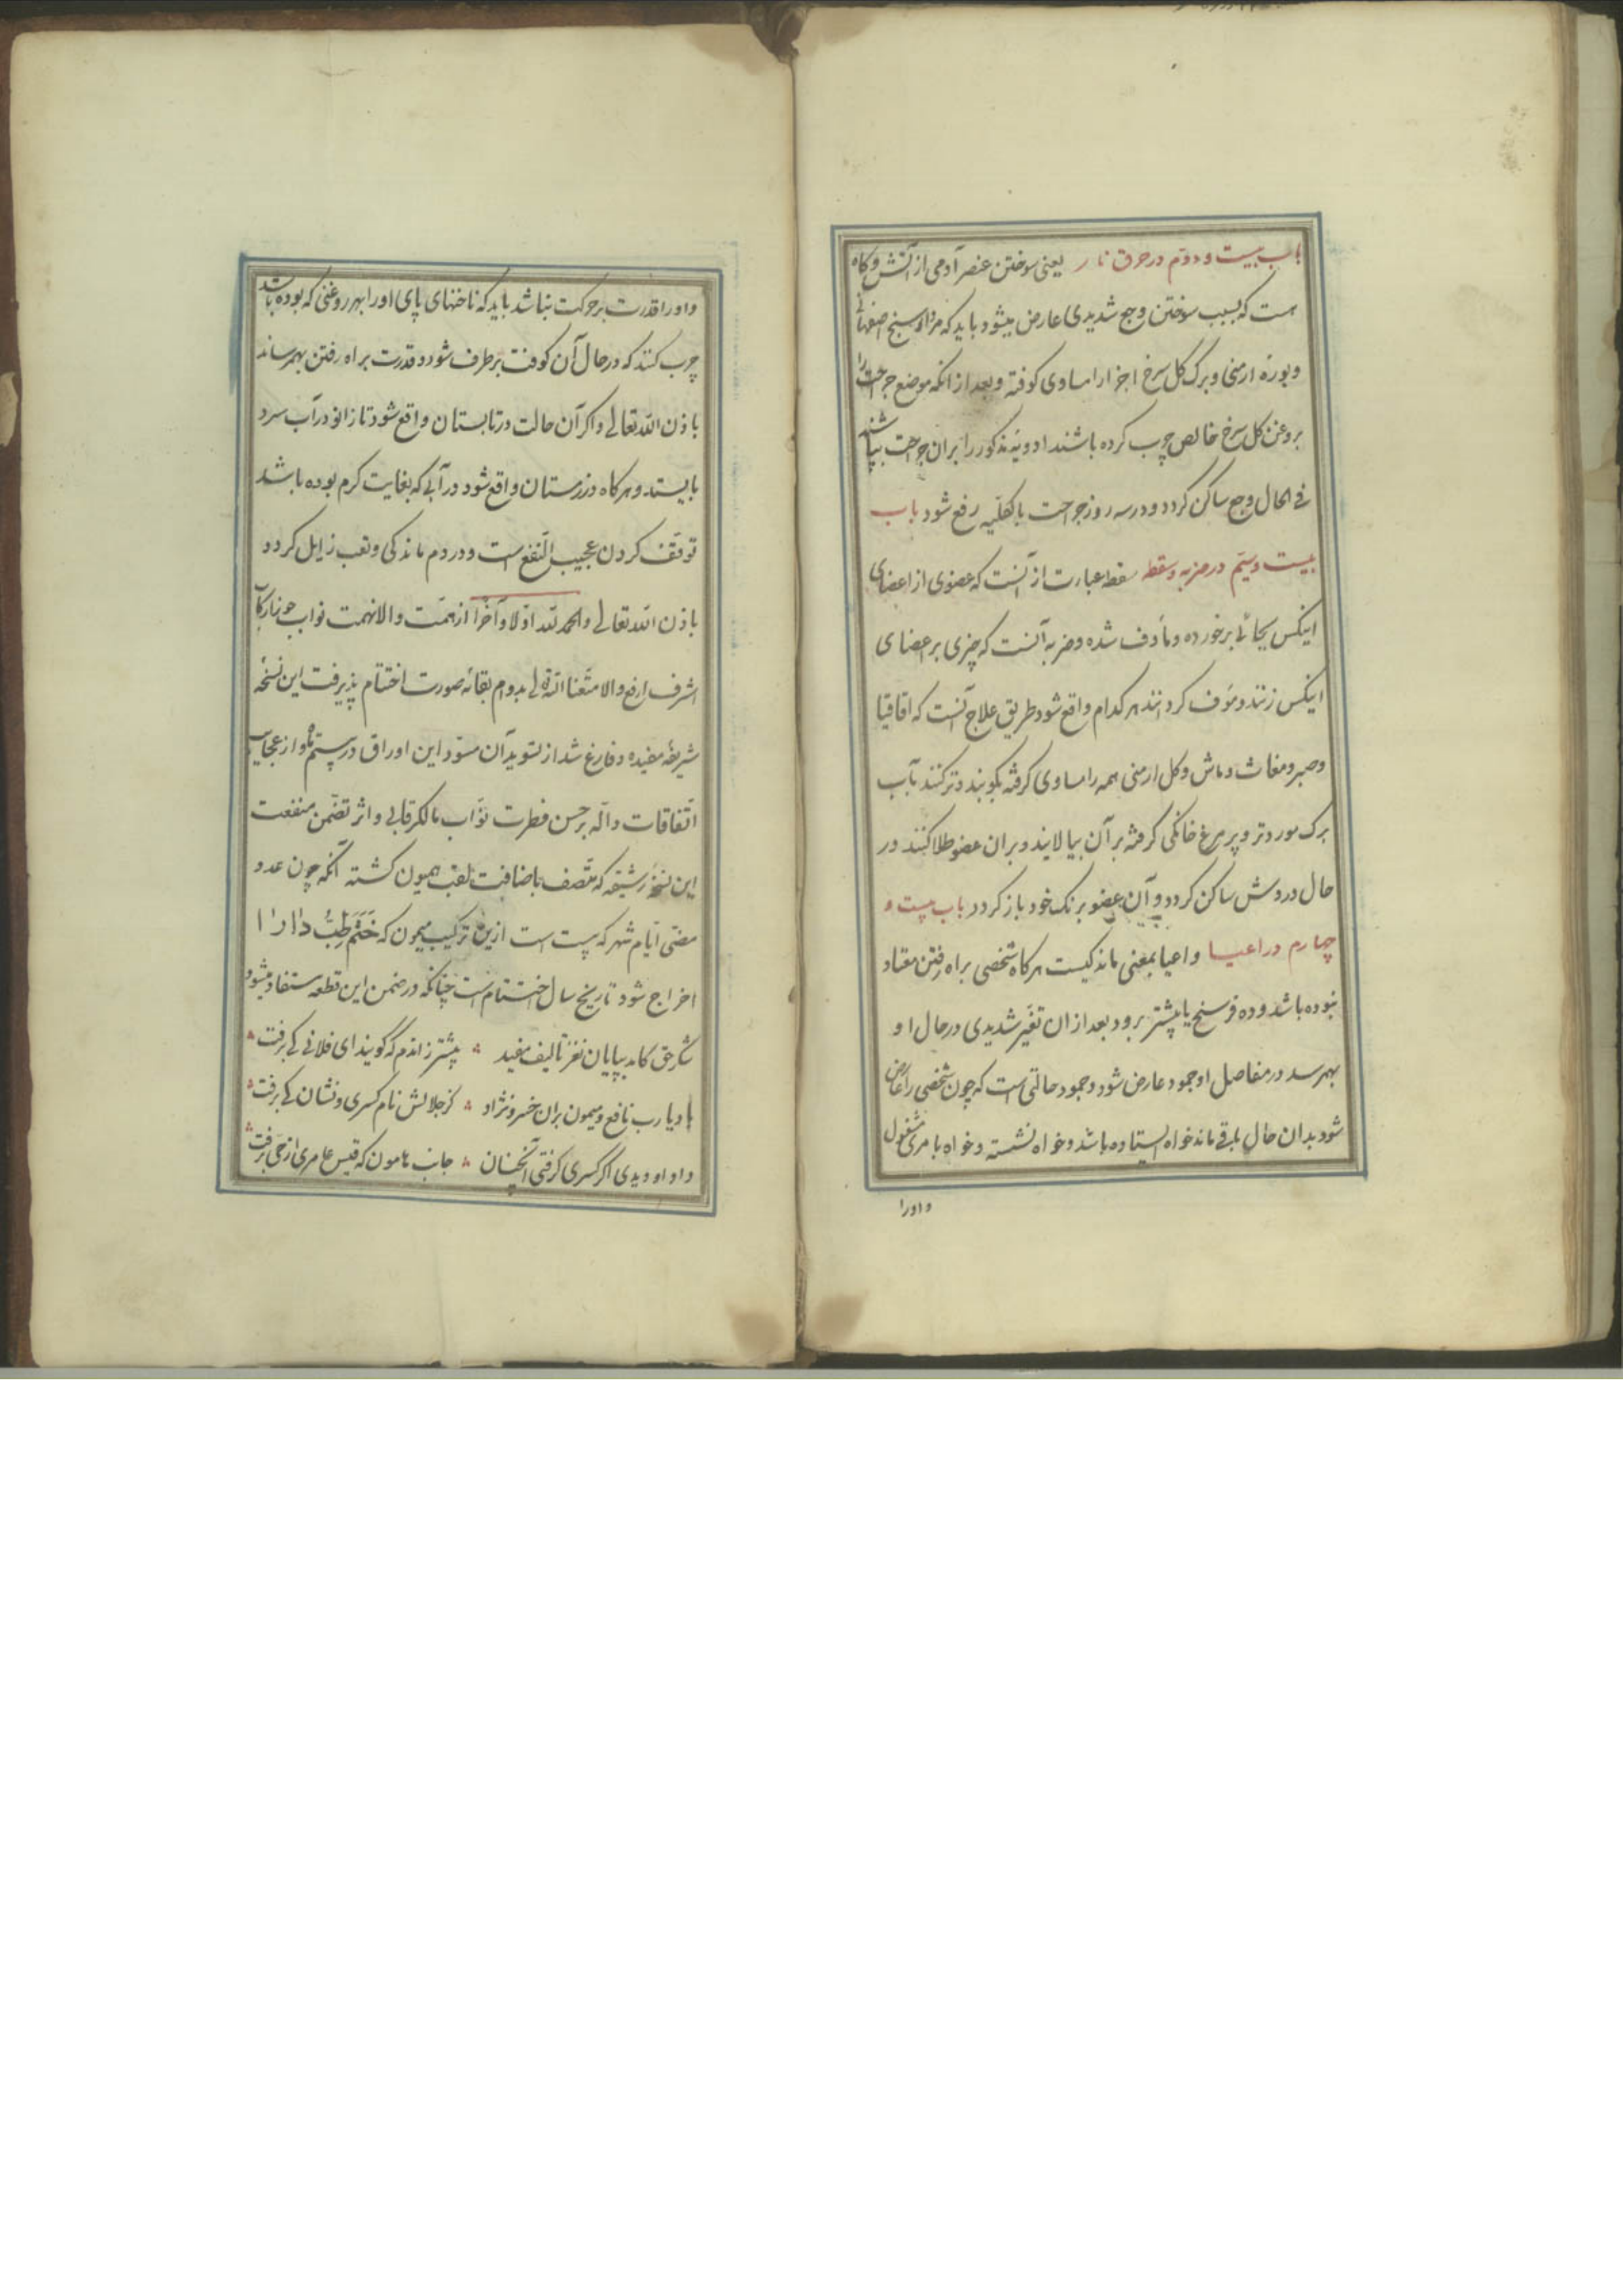 باب بیست و دوّم در حرق نار یعنی سوختن عنصر آدمی از آتش و کاه
هست که بسبب سوختن وجع شدیدی عارض میشود باید که مرداسنج اصفهانی
و بورهٔ ارمنی و برک کل سرخ اجزا را مساوی کوفته و بعد از انکه موضع جراحت را
بروغن کل سرخ خالص چرب کرده باشند ادویهٔ مذکور را بران جراحت بپاشند
فی الحال وجع ساکن کردد و در سه روز جراحت بالکلّیه رفع شود باب
بیست و سیّم در ضربه و سقطه سقطه عبارت از آنست که عضوی از اعضای
اینکس بجائی برخورده و مأوف شده و ضربه آنست که چیزی بر اعضای
اینکس زنند و مؤف کردانند هر کدام واقع شود طریق علاج آنست که اقاقیا
و صبر و مغاث و ماش و کل ارمنی همه را مساوی کرفته بکوبند و تر کنند بآب
برک مورد تر و پر مرغ خانکی کرفته بر آن بیالایند و بران عضو طلا کنند در
حال دردش ساکن کردد و آن عضو برنک خود باز کردد باب بیست و
چهارم در اعیا و اعیا بمعنی ماندکیست هر کاه شخصی براه رفتن معتاد
نبوده باشد و ده فرسنج یا بیشتر برود بعد از ان تغیّر شدیدی در حال او
بهمرسد در مفاصل او جمود عارض شود و جمود حالتی است که چون شخصی را عارض
شود بدان حال باقی ماند خواه ایستاده باشد و خواه نشسته و خواه با مری مشغول
و اورا
و اورا قدرت بر حرکت نباشد باید که ناخنهای پای اورا بهر روغنی که بوده باشد
چرب کنند که در حال آن کوفت بر طرف شود و قدرت براه رفتن بهمرساند
باذن الله تعالی و اکر آن حالت در تابستان واقع شود تا زانو در آب سرد
بایستد و هر کاه در زمستان واقع شود در آبی که بغایت کرم بوده باشد
توقّف کردن عجیب النّفع است و در دم ماندکی و تعب زایل کردد
باذن الله تعالی والحمد لله اوّلا و آخرا از همّت والا نهمت نواب
اشرف ارفع والا متّعنا الله بدوام بقائه صورت اختتام پذیرفت این نسخهٔ
شریفهٔ مفیده و فارغ شد از تسوید آن مسوّد این اوراق در بیستم ماه و از عجایب
اتّفاقات دالّه بر حسن فطرت نوّاب مالک رقابی و اثر تضمّن منفعت
این نسخهٔ رشیقه که متّصف باضافت لقب همیون کشته آنکه چون عدد
مضی ایّام شهر که بیست است ازین ترکیب میمون که خَتَم طِبّ دارا
اخراج شود تاریخ سال اختتام است چنانکه در ضمن این قطعه مستفاد میشود
شکر حق کامد بپایان نغز تالیف مفید بیشتر زاندم که گویند ای فلانی کی برفت
باد یا رب نافع و میمون بران خسرو نژاد کز جلالش نام کسری و نشان کی برفت
داد او دیدی اکر کسری کرفتی آنچنان جانب هامون که قیس عامری از حی برفت